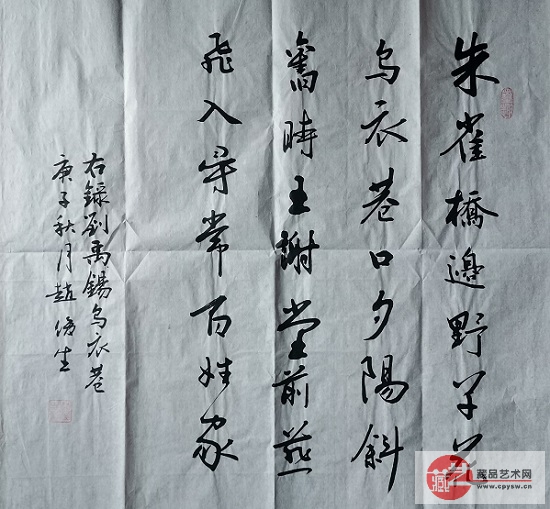 朱雀橋邊野草花
烏衣巷口夕陽斜
舊時王謝堂前燕
飛入尋常百姓家
右録劉禹錫烏衣巷
庚子秋月趙俊生
藏品艺术网
www.cpysw.cn